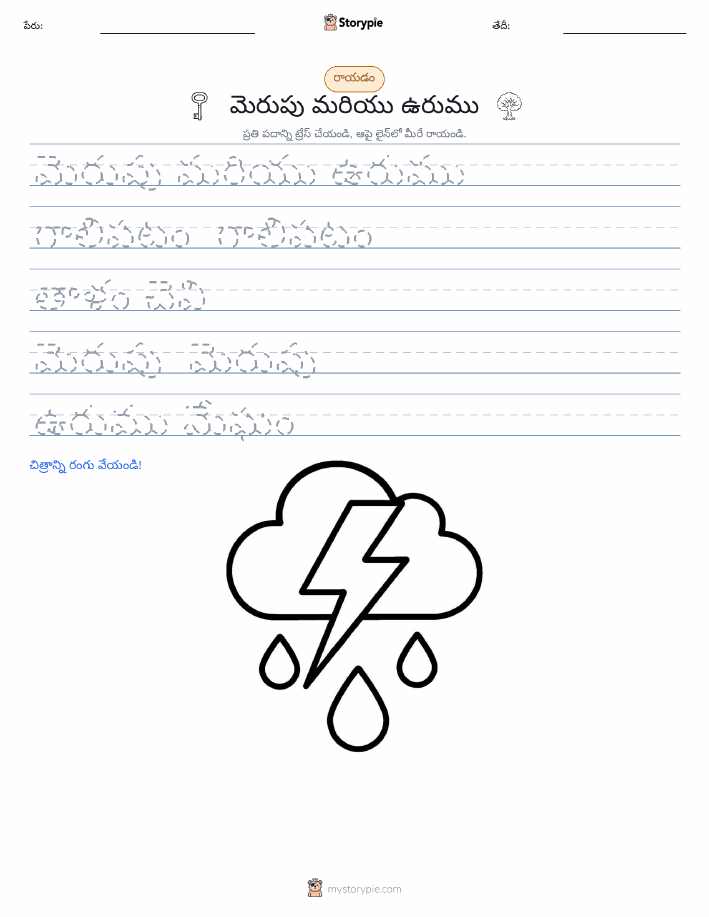 పేరు:
Storypie
తేదీ:
రాయడం
మెరుపు మరియు ఉరుము
ప్రతి పదాన్ని ట్రేస్ చేయండి, ఆపై లైన్‌లో మీరే రాయండి.
మెరుపు మరియు ఉరుము
గాలిపటం గాలిపటం
తాళం చెవి
మెరుపు మెరుపు
ఉరుము మేఘం
చిత్రాన్ని రంగు వేయండి!
mystorypie.com